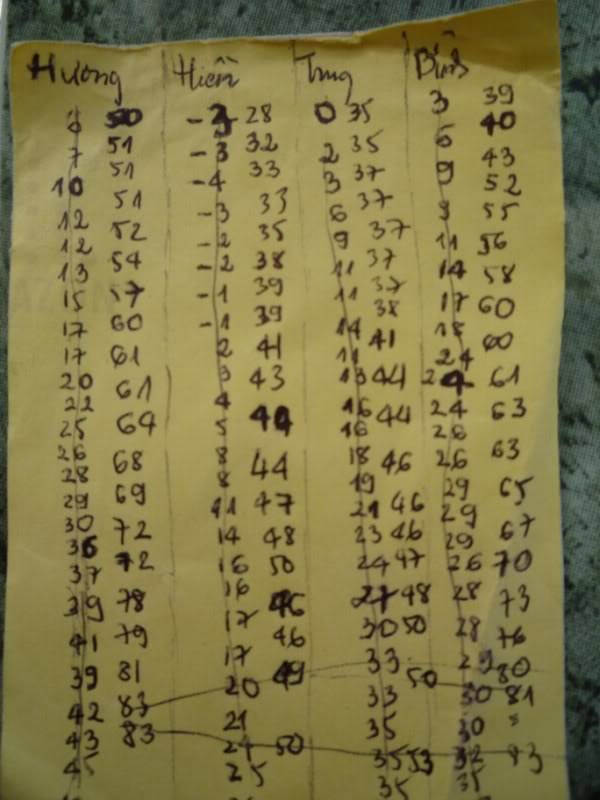 Hương Hiền Trung Bình
50 -3 28 0 35 3 39
7 51 -3 32 2 35 6 40
10 51 -4 33 3 37 9 43
12 51 -3 33 6 37 9 52
12 52 -2 35 9 37 11 55
13 54 -2 38 11 37 14 56
15 57 -1 39 11 37 17 58
17 60 -1 39 14 38 18 60
17 61 2 41 11 41 24 60
20 61 3 43 13 44 24 61
22 4 16 44 24 63
25 5 44 16 26
26 68 8 44 18 46 26 63
28 69 8 19 29 65
29 11 47 21 46 29
30 72 14 48 23 46 29 67
36 72 16 50 24 47 26 70
37 16 27 48 28 73
39 78 17 46 30 50 28 76
41 79 17 46 33 29 80
39 81 20 49 33 50 30 81
42 83 21 35 30
43 83 24 50 35 53 32 83
45 25 35 35